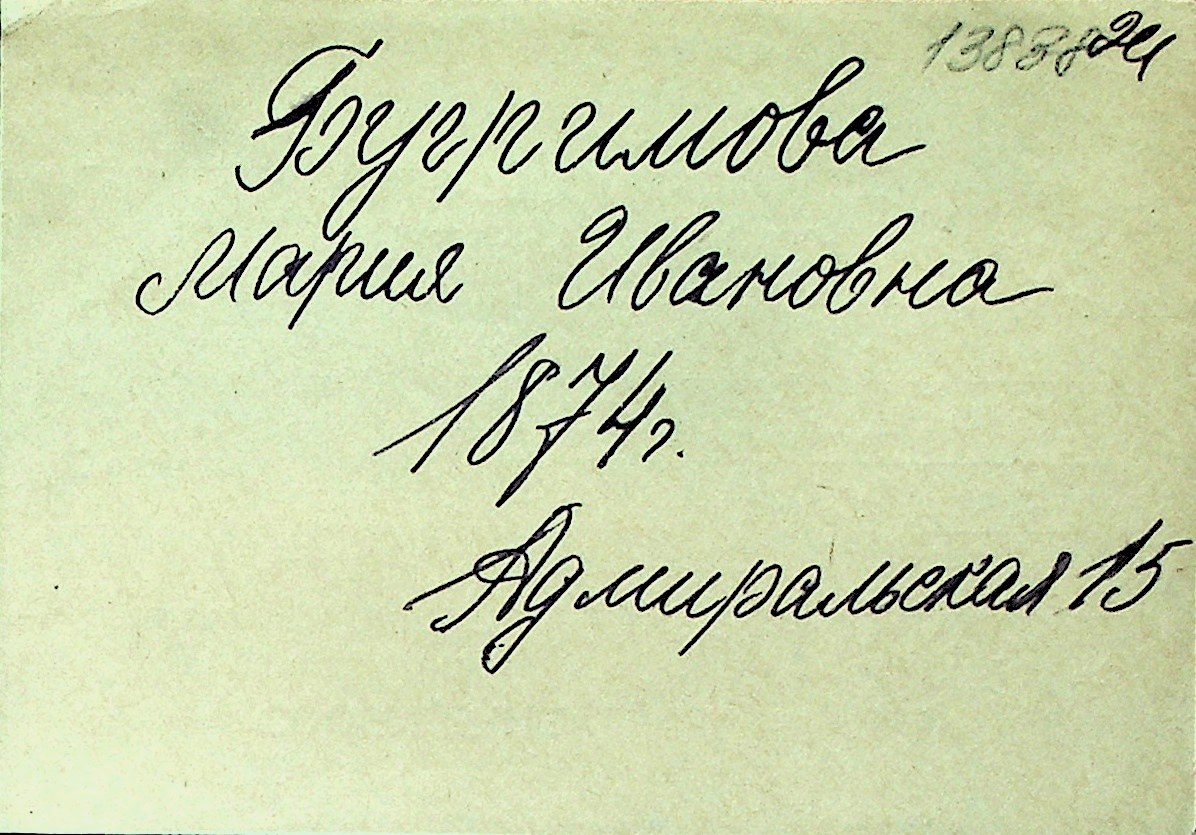 Бугримова
Мария Ивановна
1874г.
Адмиральская 15